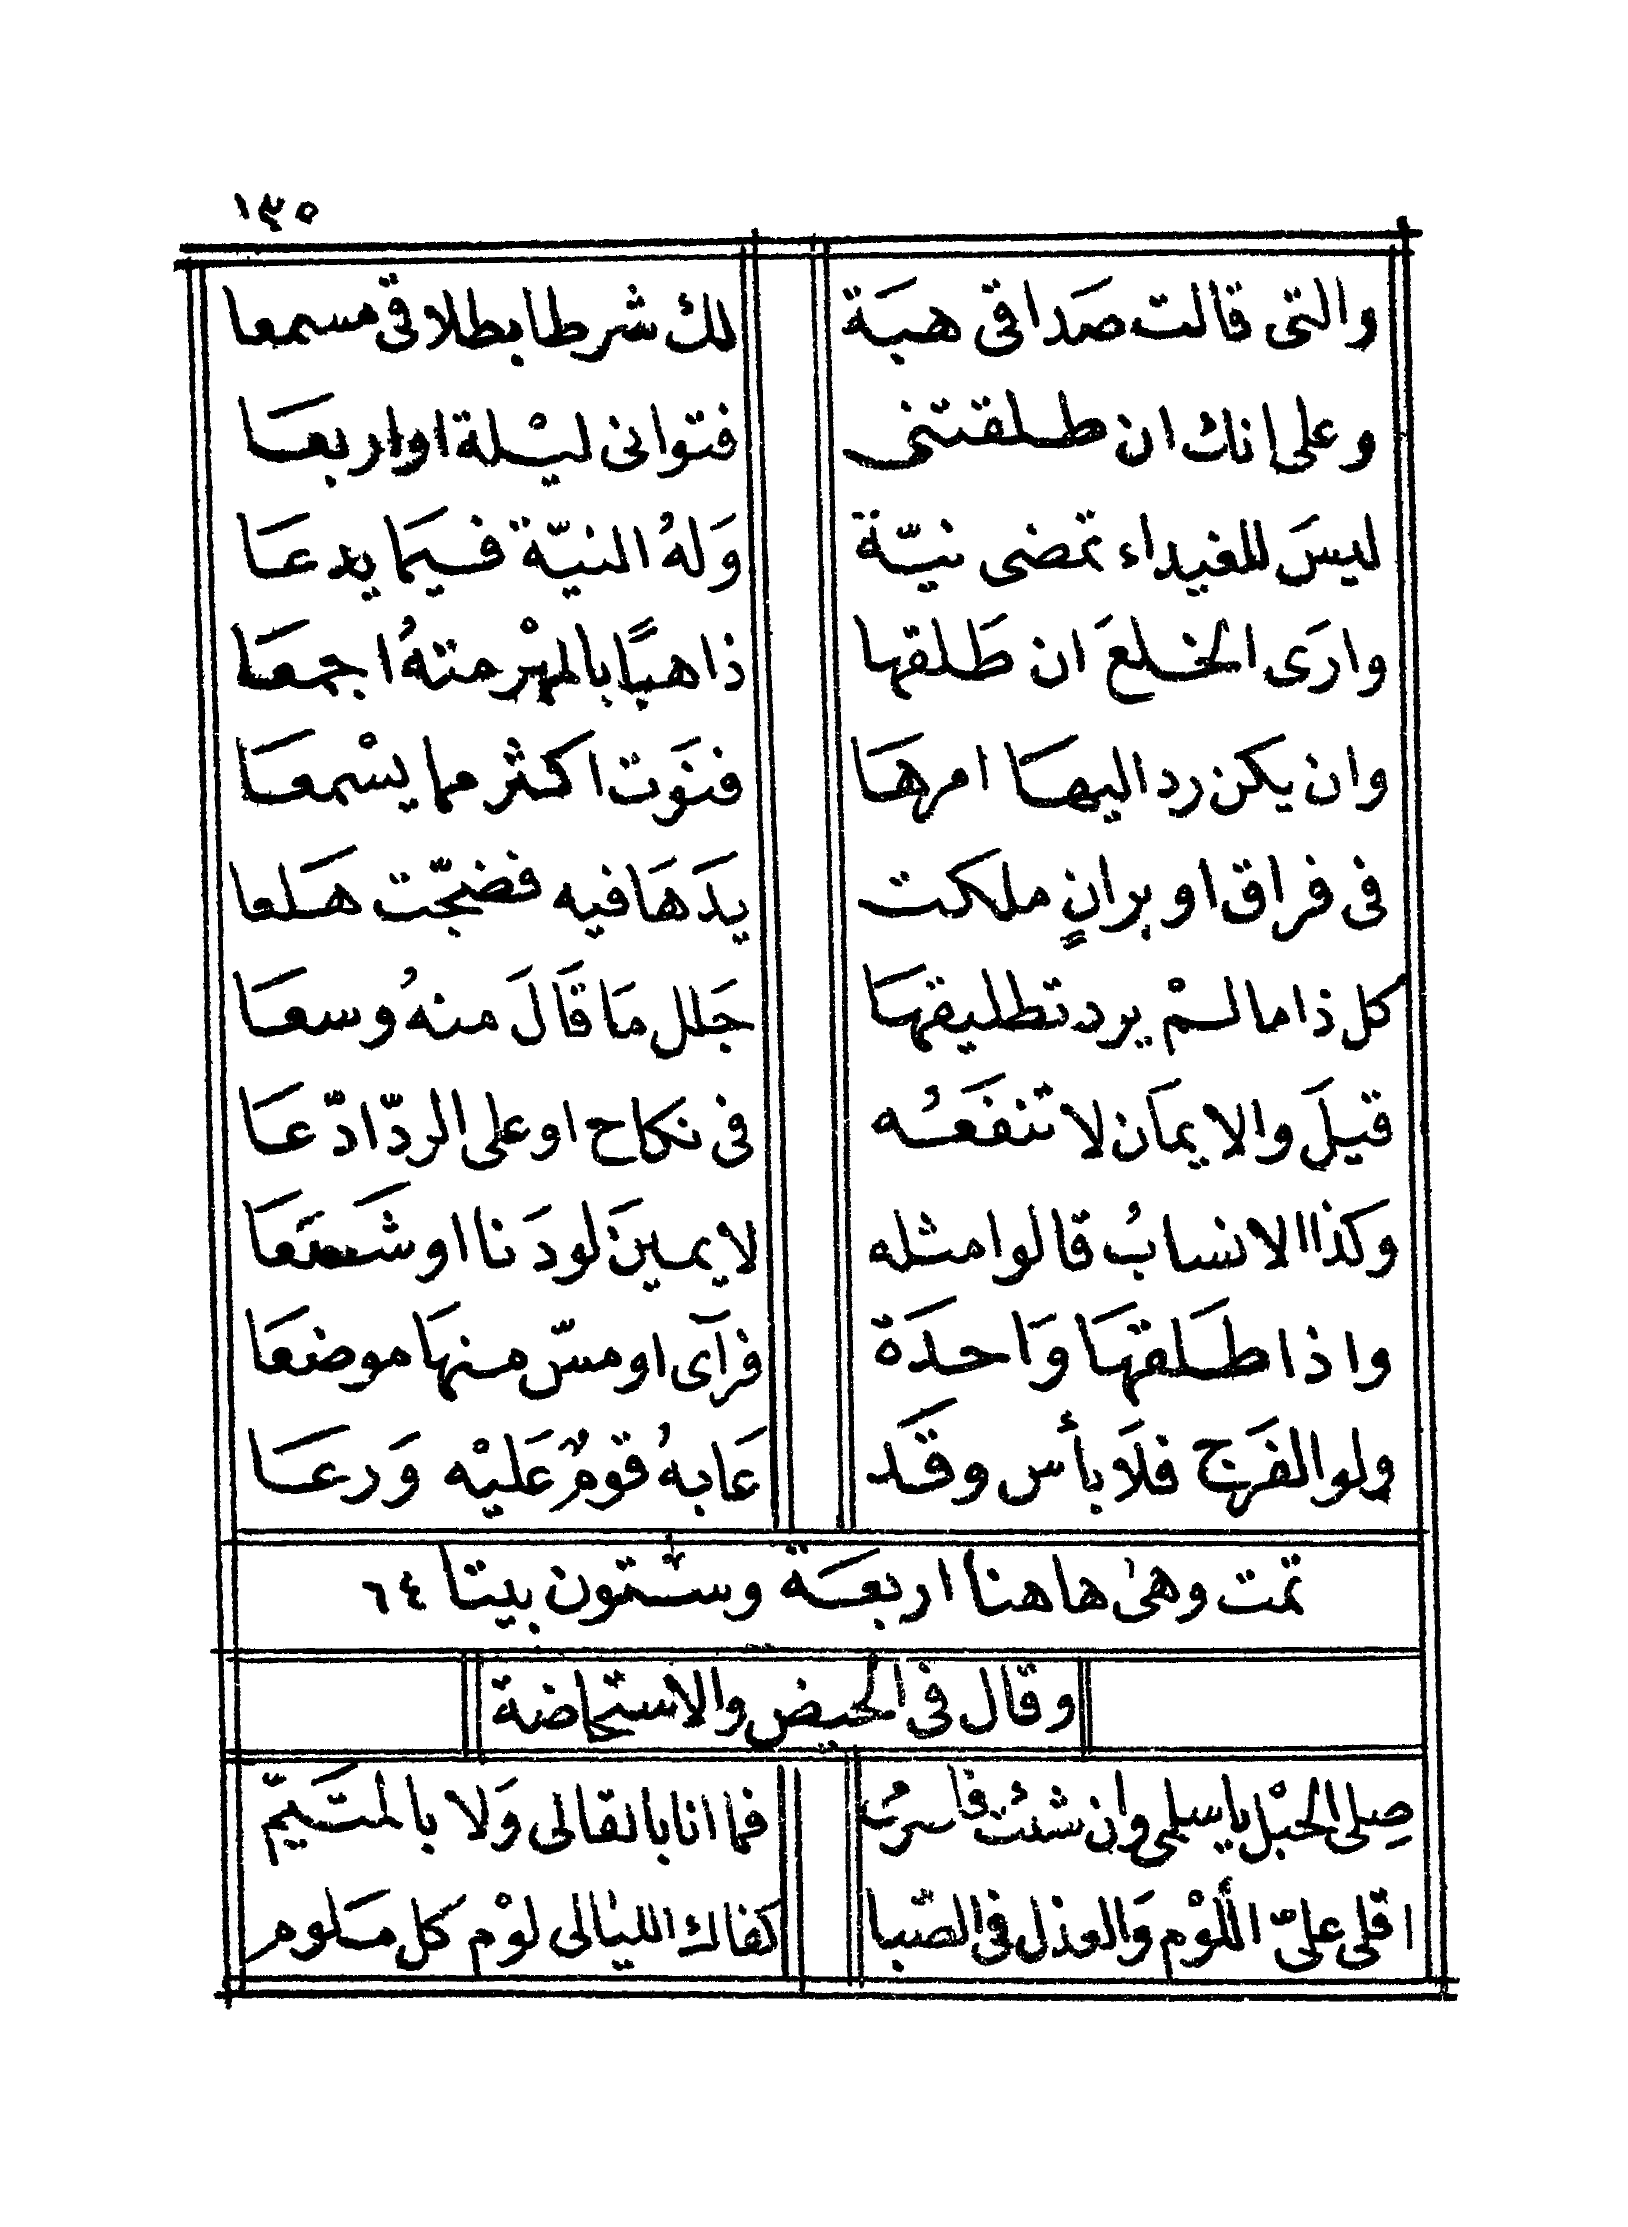 ١٣٥
والتى قالت صَداقى هبَة لك شرطا بطلاقى مسمعا
وعلى إنك ان طلقتنى فتوانى ليْلة اواربعَا
ليسَ للغيداء تمضى نيّة وَلهُ النيّة فيمَا يدعَا
وارَى الخلعَ ان طَلقها ذاهبًا بالمهْر متنهُ اجمعَا
وان يكن رد اليهَا امرهَا فنوَت اكثر مما يسْمعَا
فى فراق او برانٍ ملكت يدَهَا فيه فضجّت هَلعا
كل ذا مالمْ يرد تطليقهَا جَلل مَا قَالَ منهُ وسعَا
قيلَ والايمَان لا تنفَعُه فى نكاح او على الردّ ادّعَا
وكذا الانسابُ قالوا مثله لا يمينَ لو دَنا او شَسَعَا
واذا طَلقهَا وَاحدَة فرآى او مسّ منهَا موضعَا
ولو الفرج فلَا بأس وقَد عَابهُ قومٌ عَليْه وَرعَا
تمت وهى هاهنا اربعَة وستون بيتا ٦٤
وقال فى الحيض والاستحاضة
صِلى الحبْل يا سلمى وان شئت فاسرُب فما انا بالقالى وَلا بالمتَيمّ
اقلى علىّ اللوْم وَالعذل فى الصّبا كفاك الليالى لوْم كل مَلوم